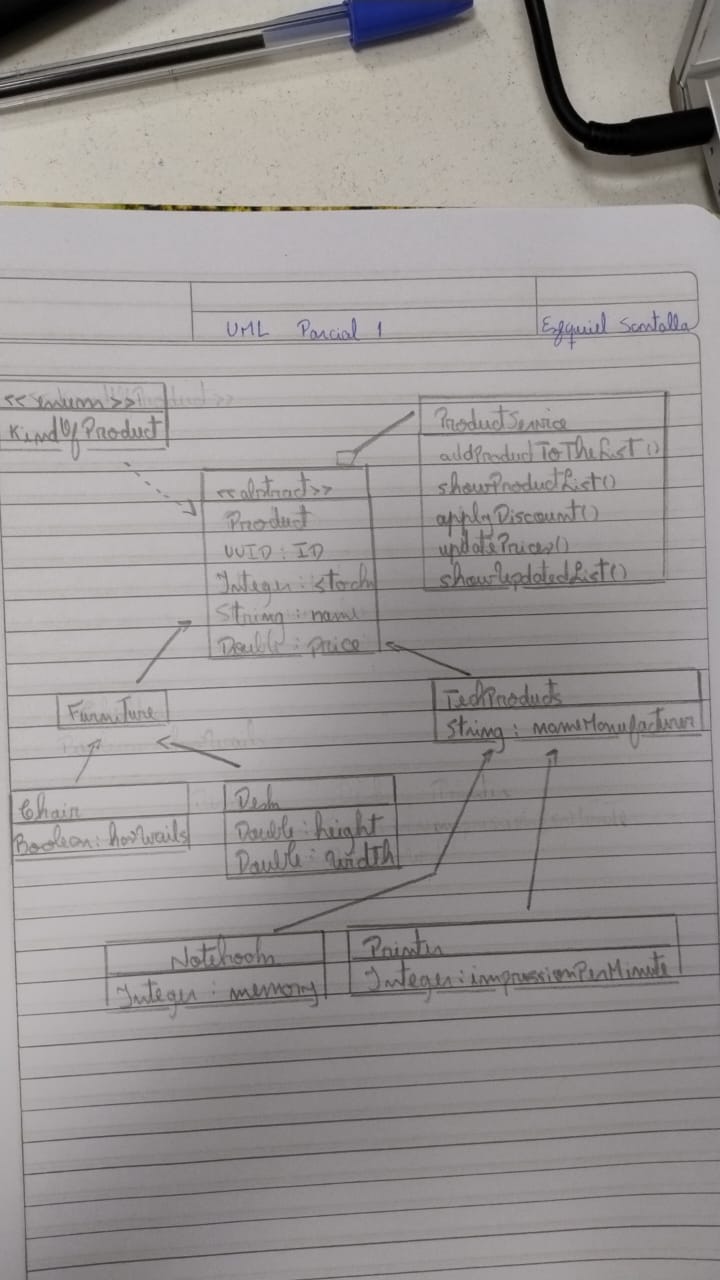 UML Parcial 1
Ezequiel Santalla
<<enum>>
KindOfProduct
ProductService
addProductToTheList()
showProductList()
applyDiscount()
updatePrices()
showUpdatedList()
<<abstract>>
Product
UUID : ID
Integer : stock
String : name
Double : price
Furniture
TechProducts
String : nameManufacturer
Chair
Boolean : hasWails
Desk
Double : height
Double : width
Notebook
Integer : memory
Printer
Integer : impressionPerMinute